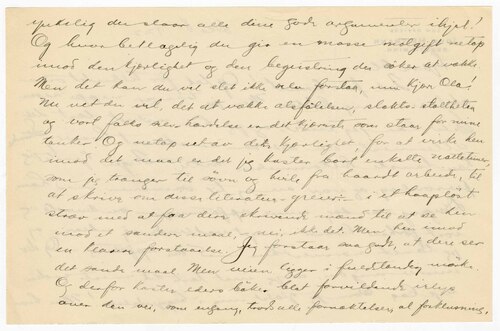 ynkelig der slaar alle dine gode argumenter ihjel!
Og hvor betlagelig du gir en masse motgift netop
mod den kjærlighet og den begeistring du søker at vække
Men det kan du vel slet ikke selv forstaa, min kjære Ola!
Nu vet du vel, det at vække alsfølelsen, slekts stoltheten
og vort folks selvhævdelse er det kjæreste som staar for mine
tanker Og netop ut av den kjærlighet, for at virke hen
imod det maal er det jeg kaster bort enkelte nattetimer
som jeg trænger til søvn og hvile fra haardt arbeide, til
at skrive om disse literatur-greier i et haapløst
strev med at faa dere skrivende mænd til at se hen
imod et sandere maal, nei, ikke det. Men hen imod
en klarere forstaaelse. Jeg forstaar saa godt, at dere ser
det sande maal Men veien ligger i fuldstændig mørke.
Og derfor kaster eders bøker blot forvildende virlys
over den vei, som engang, trods alle fornægtelser, al forkludring,